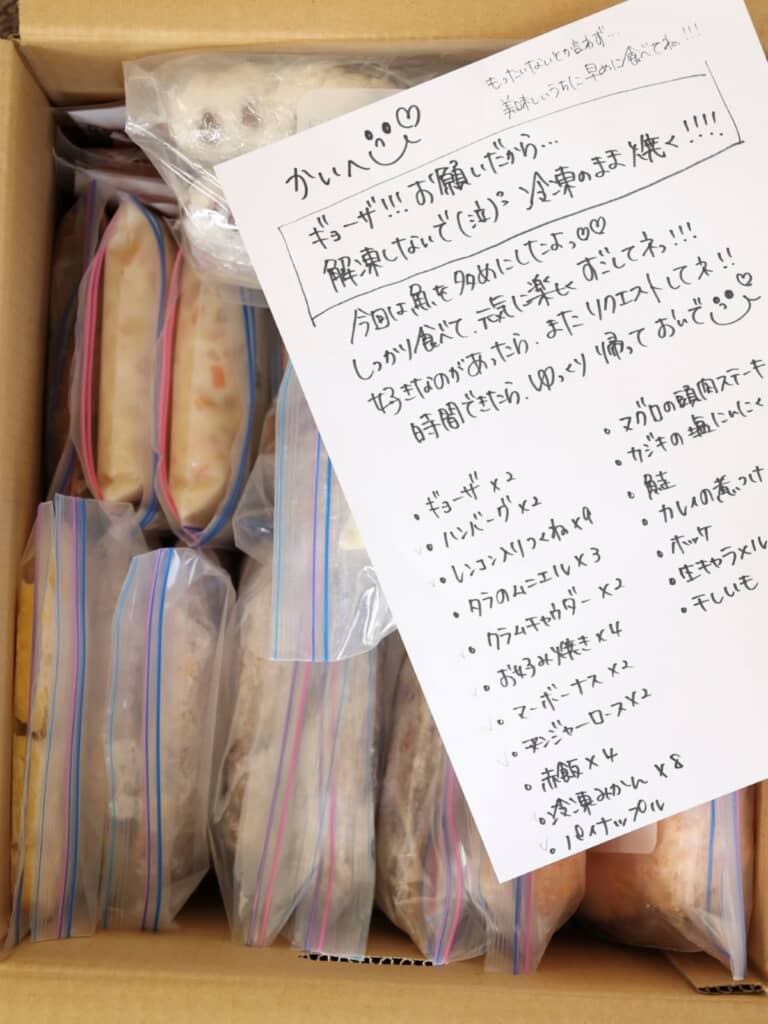 もったいないとか言わず…
美味しいうちに早めに食べてね!!!
かいへ
ギョーザ!!! お願いだから…
解凍しないで(泣)": 冷凍のまま焼く!!!!
今回は魚を多めにしたよっ♡♡
しっかり食べて、元気に楽しく すごしてネっ!!!
好きなのがあったら、また リクエストしてネ!!
時間できたら、ゆっくり 帰って おいで
・ギョーザ×2
・ハンバーグ×2
・レンコン入りつくね×9
・タラのムニエル×3
・クラムチャウダー×2
・お好み焼き×4
・マーボーナス×2
・チンジャーロース×2
・赤飯×4
・冷凍みかん×8
・パイナップル
・マグロの頭肉ステーキ
・カジキの塩にんにく
・鮭
・カレイの煮つけ
・ホッケ
・生キャラメル
・干しいも